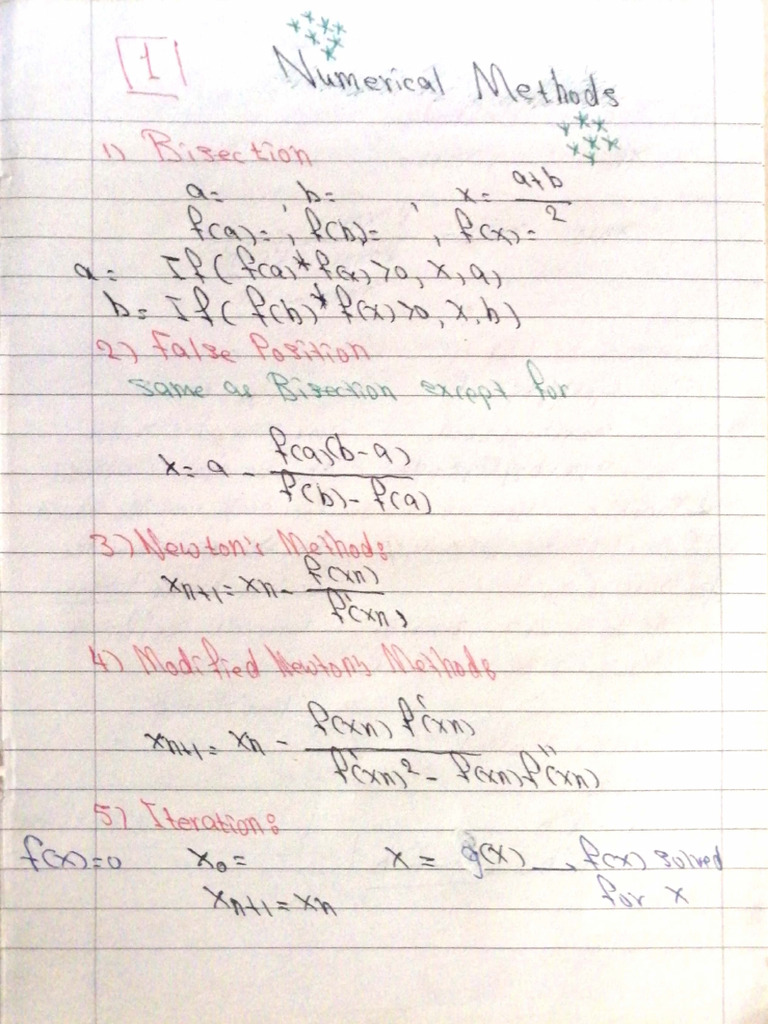 1
Numerical Methods
1) Bisection
a= , b= , x= a+b / 2
f(a)= , f(b)= , f(x)=
a= If( f(a)*f(x)>0, x, a)
b= If( f(b)*f(x)>0, x, b)
2) False Position
same as Bisection except for
x= a - f(a)(b-a) / f(b)-f(a)
3) Newton's Methods
xn+1 = xn - f(xn) / f'(xn)
4) Modified Newton's Methods
xn+1 = xn - f(xn) f'(xn) / f'(xn)² - f(xn) f''(xn)
5) Iteration:
f(x)=0 x0= x = g(x) → f(x) solved
for x
xn+1 = xn